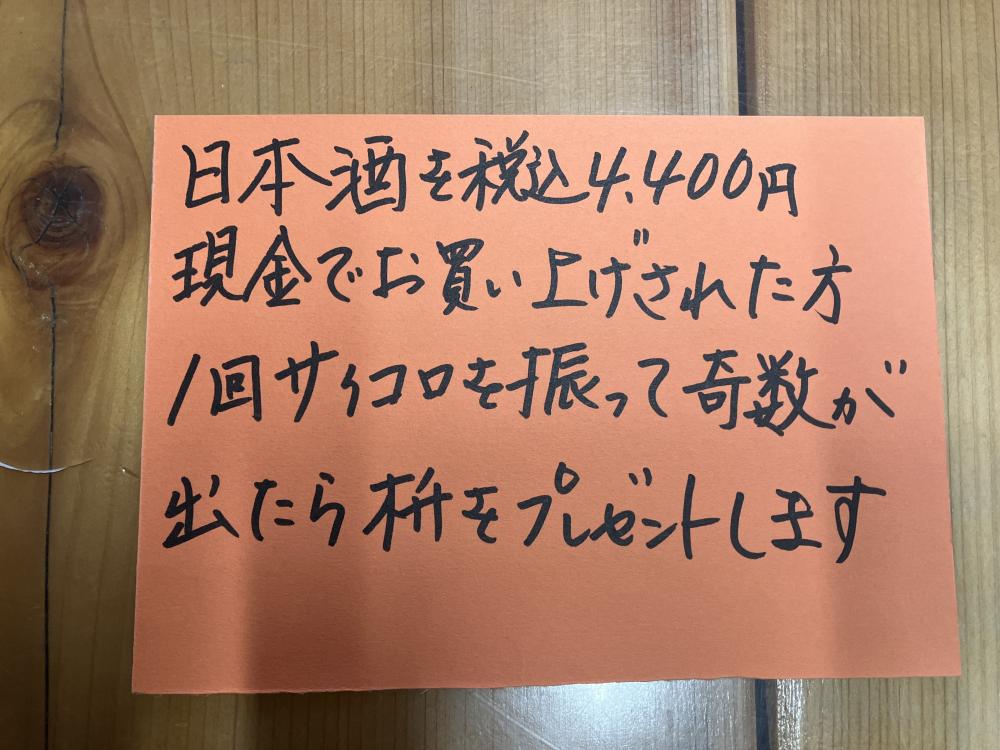 日本酒を税込4,400円
現金でお買い上げされた方
1回サイコロを振って奇数が
出たら枡をプレゼントします